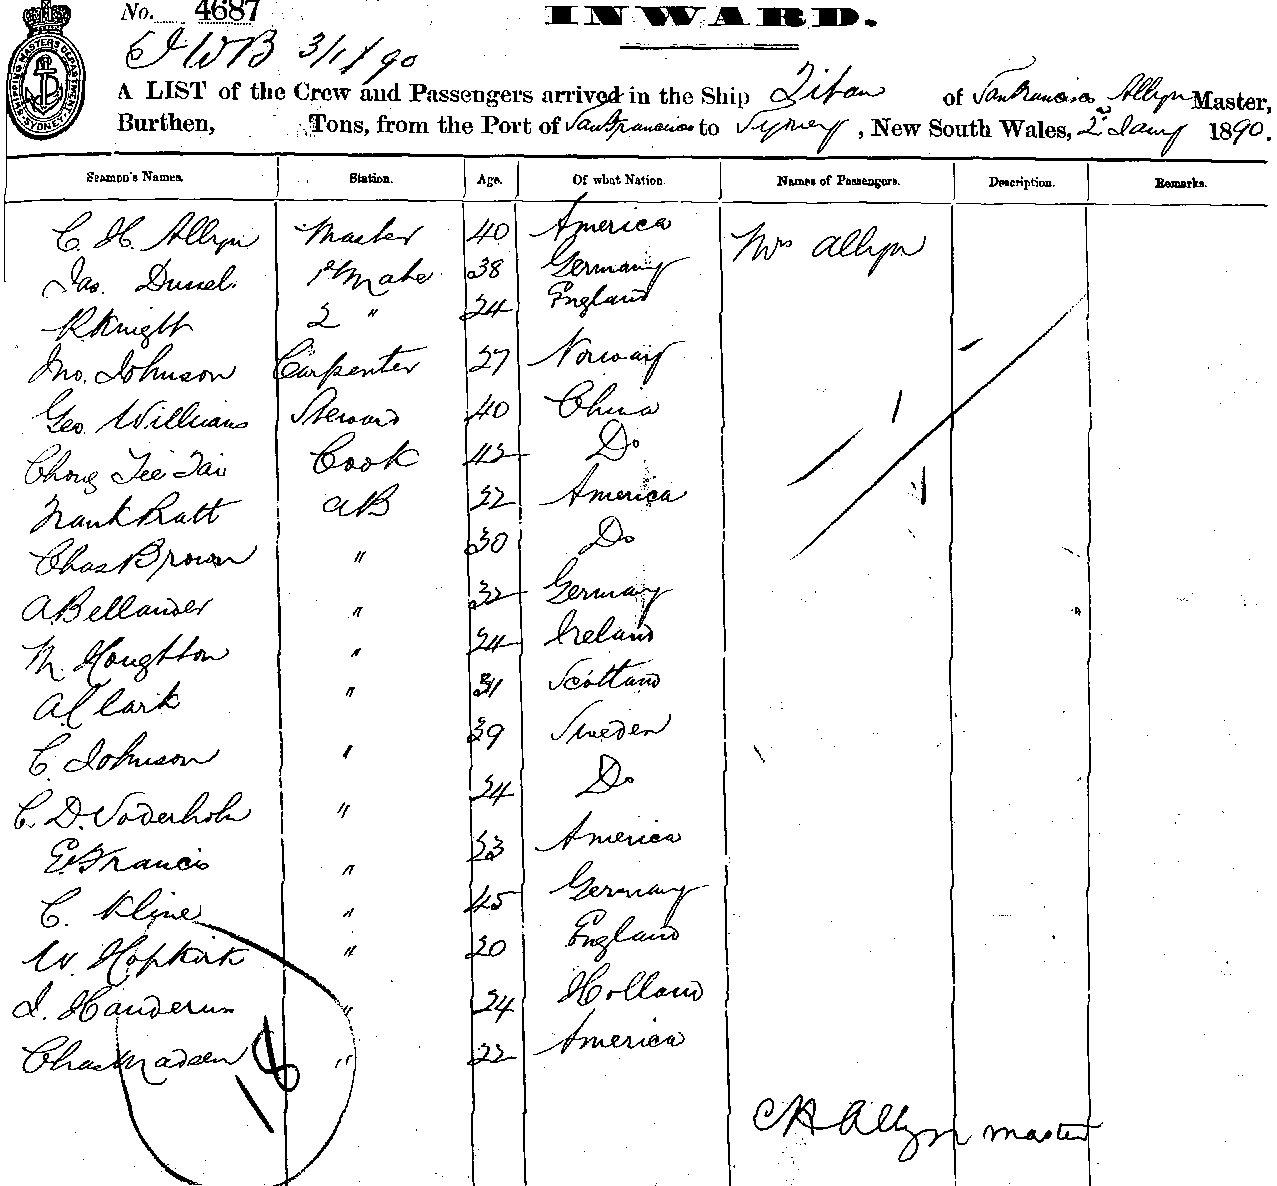 No. 4687
INWARD.
SHIPPING MASTERS DEPARTMENT SYDNEY
JWB 3/1/90
A LIST of the Crew and Passengers arrived in the Ship Titan of San Francisco Allyn Master,
Burthen, Tons, from the Port of San Francisco to Sydney, New South Wales, 2d Jany 1890.
Seamen's Names. Station. Age. Of what Nation. Names of Passengers. Description. Remarks.
C. H. Allyn Master 40 America Mrs Allyn
Jas. 1st Mate 38 Germany
R Knight 2 " 24 England
Jno. Johnson Carpenter 27 Norway
Geo. Williams Steward 40 China
Chong Tee Tai Cook 42 Do
Frank Pratt AB 22 America
Chas Brown " 30 Do
A Bellander " 32 Germany
M. Houghton " 24 Ireland
A Clark " 31 Scotland
C. Johnson " 39 Sweden
C. D. Soderholm " 24 Do
E. Francis " 23 America
C. Kline " 45 Germany
W. Hopkirk " 20 England
J. " 24 Holland
Chas Madsen " 22 America
18
C H Allyn master